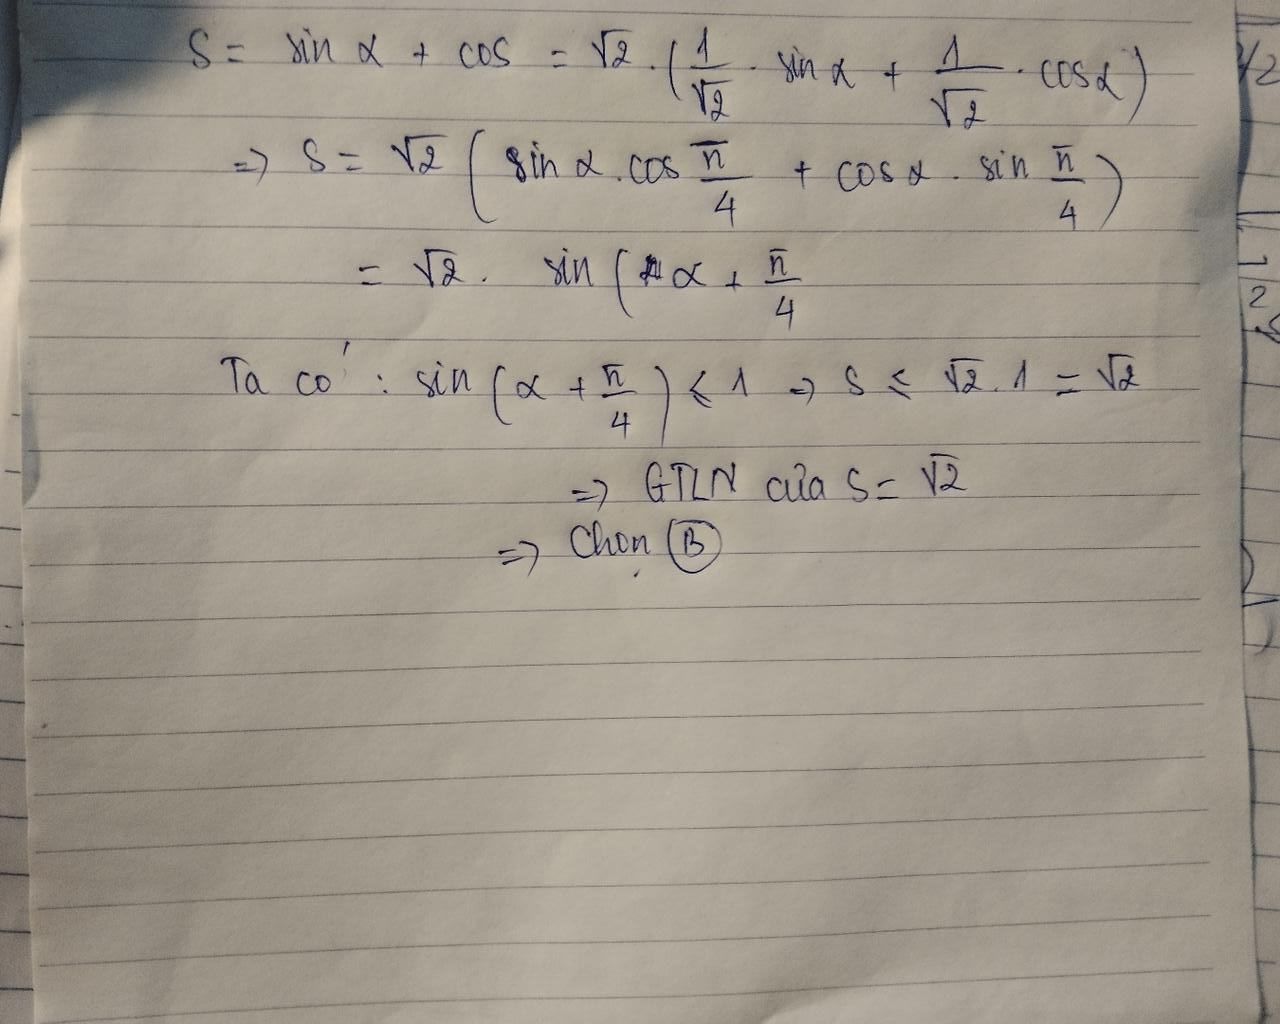 S = sin α + cos = √2 . (1/√2 . sin α + 1/√2 . cosα)
=> S = √2 (sin α . cos π/4 + cos α . sin π/4)
= √2 . sin (α + π/4
Ta có : sin (α + π/4) ≤ 1 => S ≤ √2 . 1 = √2
=> GTLN của S = √2
=> Chọn B